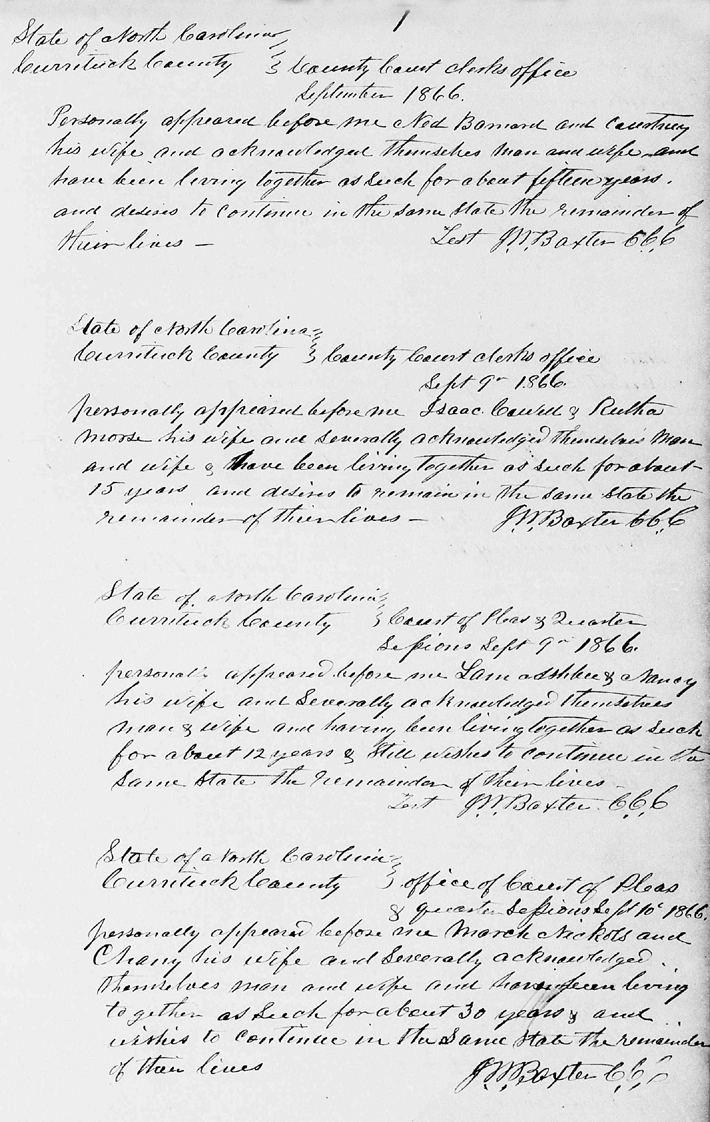 1
State of North Carolina
Currituck County } County Court Clerks office
September 1866.
Personally appeared before me Ned Barnard and Courtney
his wife and acknowledged themselves man and wife and
have been living together as such for about fifteen years.
and desires to continue in the same state the remainder of
their lives — Test J.W. Baxter C.C.C
State of North Carolina
Currituck County } County Court Clerks office
Sept 9th 1866.
personally appeared before me Isaac Cowell & Rutha
Morse his wife and severally acknowledged themselves man
and wife & have been living together as such for about
15 years and desires to remain in the same state the
remainder of their lives — J.W. Baxter C.C.C
State of North Carolina
Currituck County } Court of Pleas & Quarter
Sessions Sept 9th 1866.
personally appeared before me Sam & Nancy
his wife and severally acknowledged themselves
man & wife and having been living together as such
for about 12 years & still wishes to continue in the
same state the remainder of their lives
Test J.W. Baxter. C.C.C
State of North Carolina
Currituck County } office of Court of Pleas
& quarter Sessions Sept 10th 1866.
personally appeared before me March Nickols and
Chany his wife and severally acknowledged
themselves man and wife and have been living
together as such for about 30 years & and
wishes to continue in the same state the remainder
of their lives J.W. Baxter C.C.C